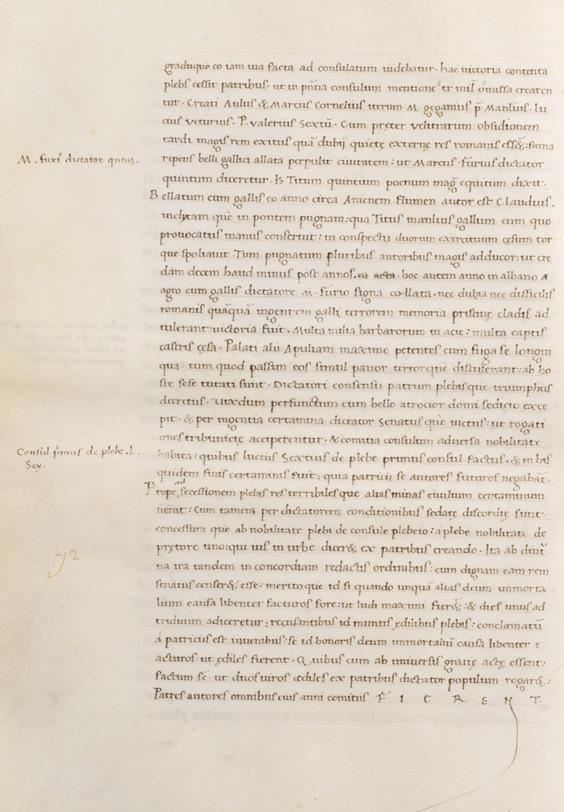 graduque eo iam uia facta ad consulatum uidebatur. hac uictoria contenta
plebs cessit patribus. ut in p̄ntia consulum mentione tr̄ mil̄ omissa crearen
tur. Creati Aulus & Marcus Cornelius iterum M. gegamus p̄ Manlius. lu
cius veturius. P. valerius Sextū. Cum preter velitrarum obsidionem
tardi magis rem exitus quā dubij quietę externę res romanis ess&: fama
M. furi' dictator qntus.
repens belli gallici allata perpulit ciuitatem: ut Marcus furius dictator
quintum diceretur. Is Titum quintium poenum mag̃ equitum dixit.
Bellatum cum gallis eo anno circa Anienem flumen autor est Claudius.
inclytam que in pontem pugnam: qua Titus manlius gallum cum quo
prouocatus manus conseruit: in conspectu duorum exercituum cęsum tor
que spoliauit. Tum pugnatum pluribus autoribus magis adducor: ut cre
dam decem haud minus post annos. ea acta. hoc autem anno in albano
agro cum gallis dictatore M. furio signa collata. nec dubia nec difficilis
romanis quāquā ingentem galli terrorem memoria pristinę cladis ad
tulerant: uictoria fuit. Multa milia barbarorum in acie: multa captis
castris cęsa. Palati alii Apuliam maxime petentes cum fuga se longin
qua: tum quod passim eos simul pauor terrorque distulerant: ab ho
ste sese tutati sunt. Dictatori consensu patrum plebisque triumphus
decretus. Vixdum perfunctum eum bello atrocior domi seditio exce
pit. & per ingentia certamina dictator senatusque uictus: ut rogati
ones tribunicię acciperentur. & comitia consulum aduersa nobilitate
Consul p̄mus de plebe .L.
Sex.
habita: quibus lucius Sextius de plebe primus consul factus. & in his
quidem finis certaminis fuit: quia patricii se autores futuros negabāt.
Prope ad secessionem plebis res terribilesque alias minas ciuilium certaminum
uenit: Cum tamen per dictatorem conditionibus sedatę discordię sunt.
concessum que ab nobilitate plebi de consule plebeio: a plebe nobilitati de
pretore uno: qui ius in urbe dicer& ex patribus creando. Ita ab diuti
na ira tandem in concordiam redactis ordinibus: cum dignam eam rem
senatus conser&: esse: merito que id si quando unquā alias deum immorta
lium causa libenter facturos fore: ut ludi maximi fier&: & dies unus ad
triduum adiceretur: recusantibus id munus ędilibus plebis: conclamatū
a patriciis est iuuenibus: se id honoris deum immortaliū causa libenter
acturos: ut ędiles fierent. Quibus cum ab uniuersis gratię actę essent:
factum se. ut duos uiros ędiles ex patribus dictator populum rogar&:
Patres autores omnibus eius anni comitiis F I E R E N T.